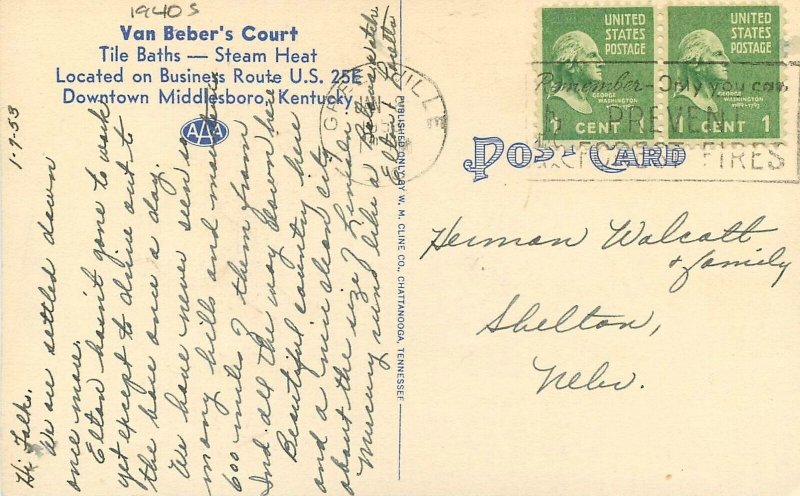 1940s
Van Beber's Court
Tile Baths — Steam Heat
Located on Business Route U.S. 25E
Downtown Middlesboro, Kentucky
AAA
1-9-53
Hi Folk.
We are settled down
once more.
Elton hasn't gone to work
yet except to drive out to
the base once a day.
We have never seen so
many hills and mountains
600 miles of them from
Ind. all the way down here
Beautiful country here
and a nice clean city
about the size of
Mercury runs like a
Elton &
Loretta
PUBLISHED ONLY BY W. M. CLINE CO., CHATTANOOGA, TENNESSEE
GREENVILLE
UNITED
STATES
POSTAGE
GEORGE
WASHINGTON
1 CENT 1
UNITED
STATES
POSTAGE
GEORGE
WASHINGTON
1789-1797
1 CENT 1
Remember-Only you can
PREVENT
FOREST FIRES
POST CARD
Herman Walcott
& family
Shelton,
Nebr.